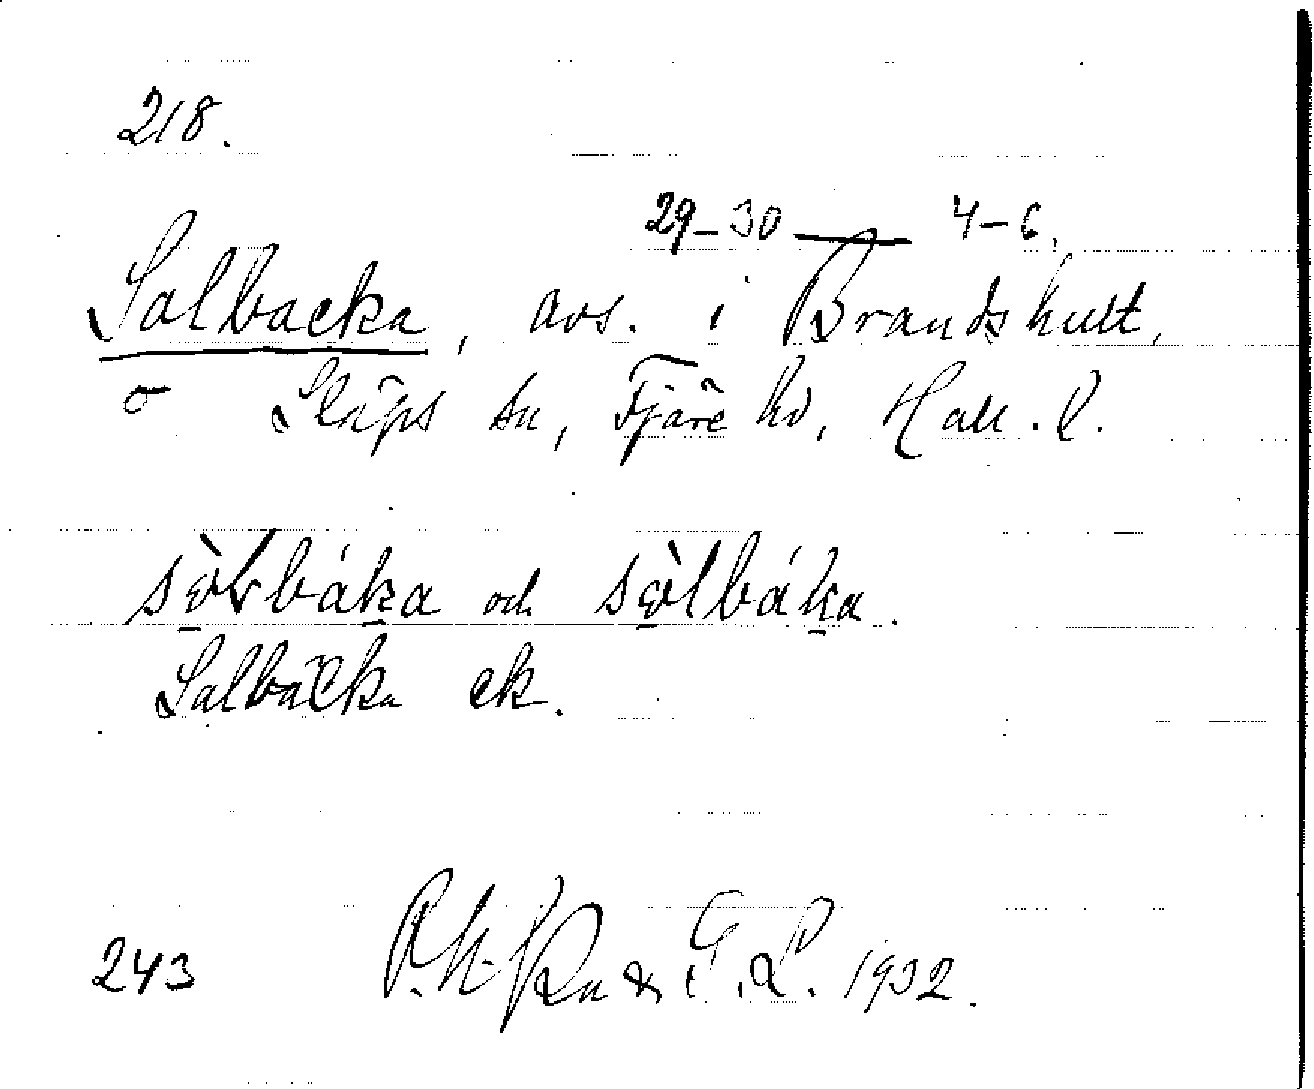 218.
29-30 — 4-6.
Salbacka, avs. i Brandshult,
Släps sn, Fjäre hd, Hall. l.
sɷ̀lbáka och sɷ̀lbáka.
Salbacka ek.
243 & G. L. 1932.